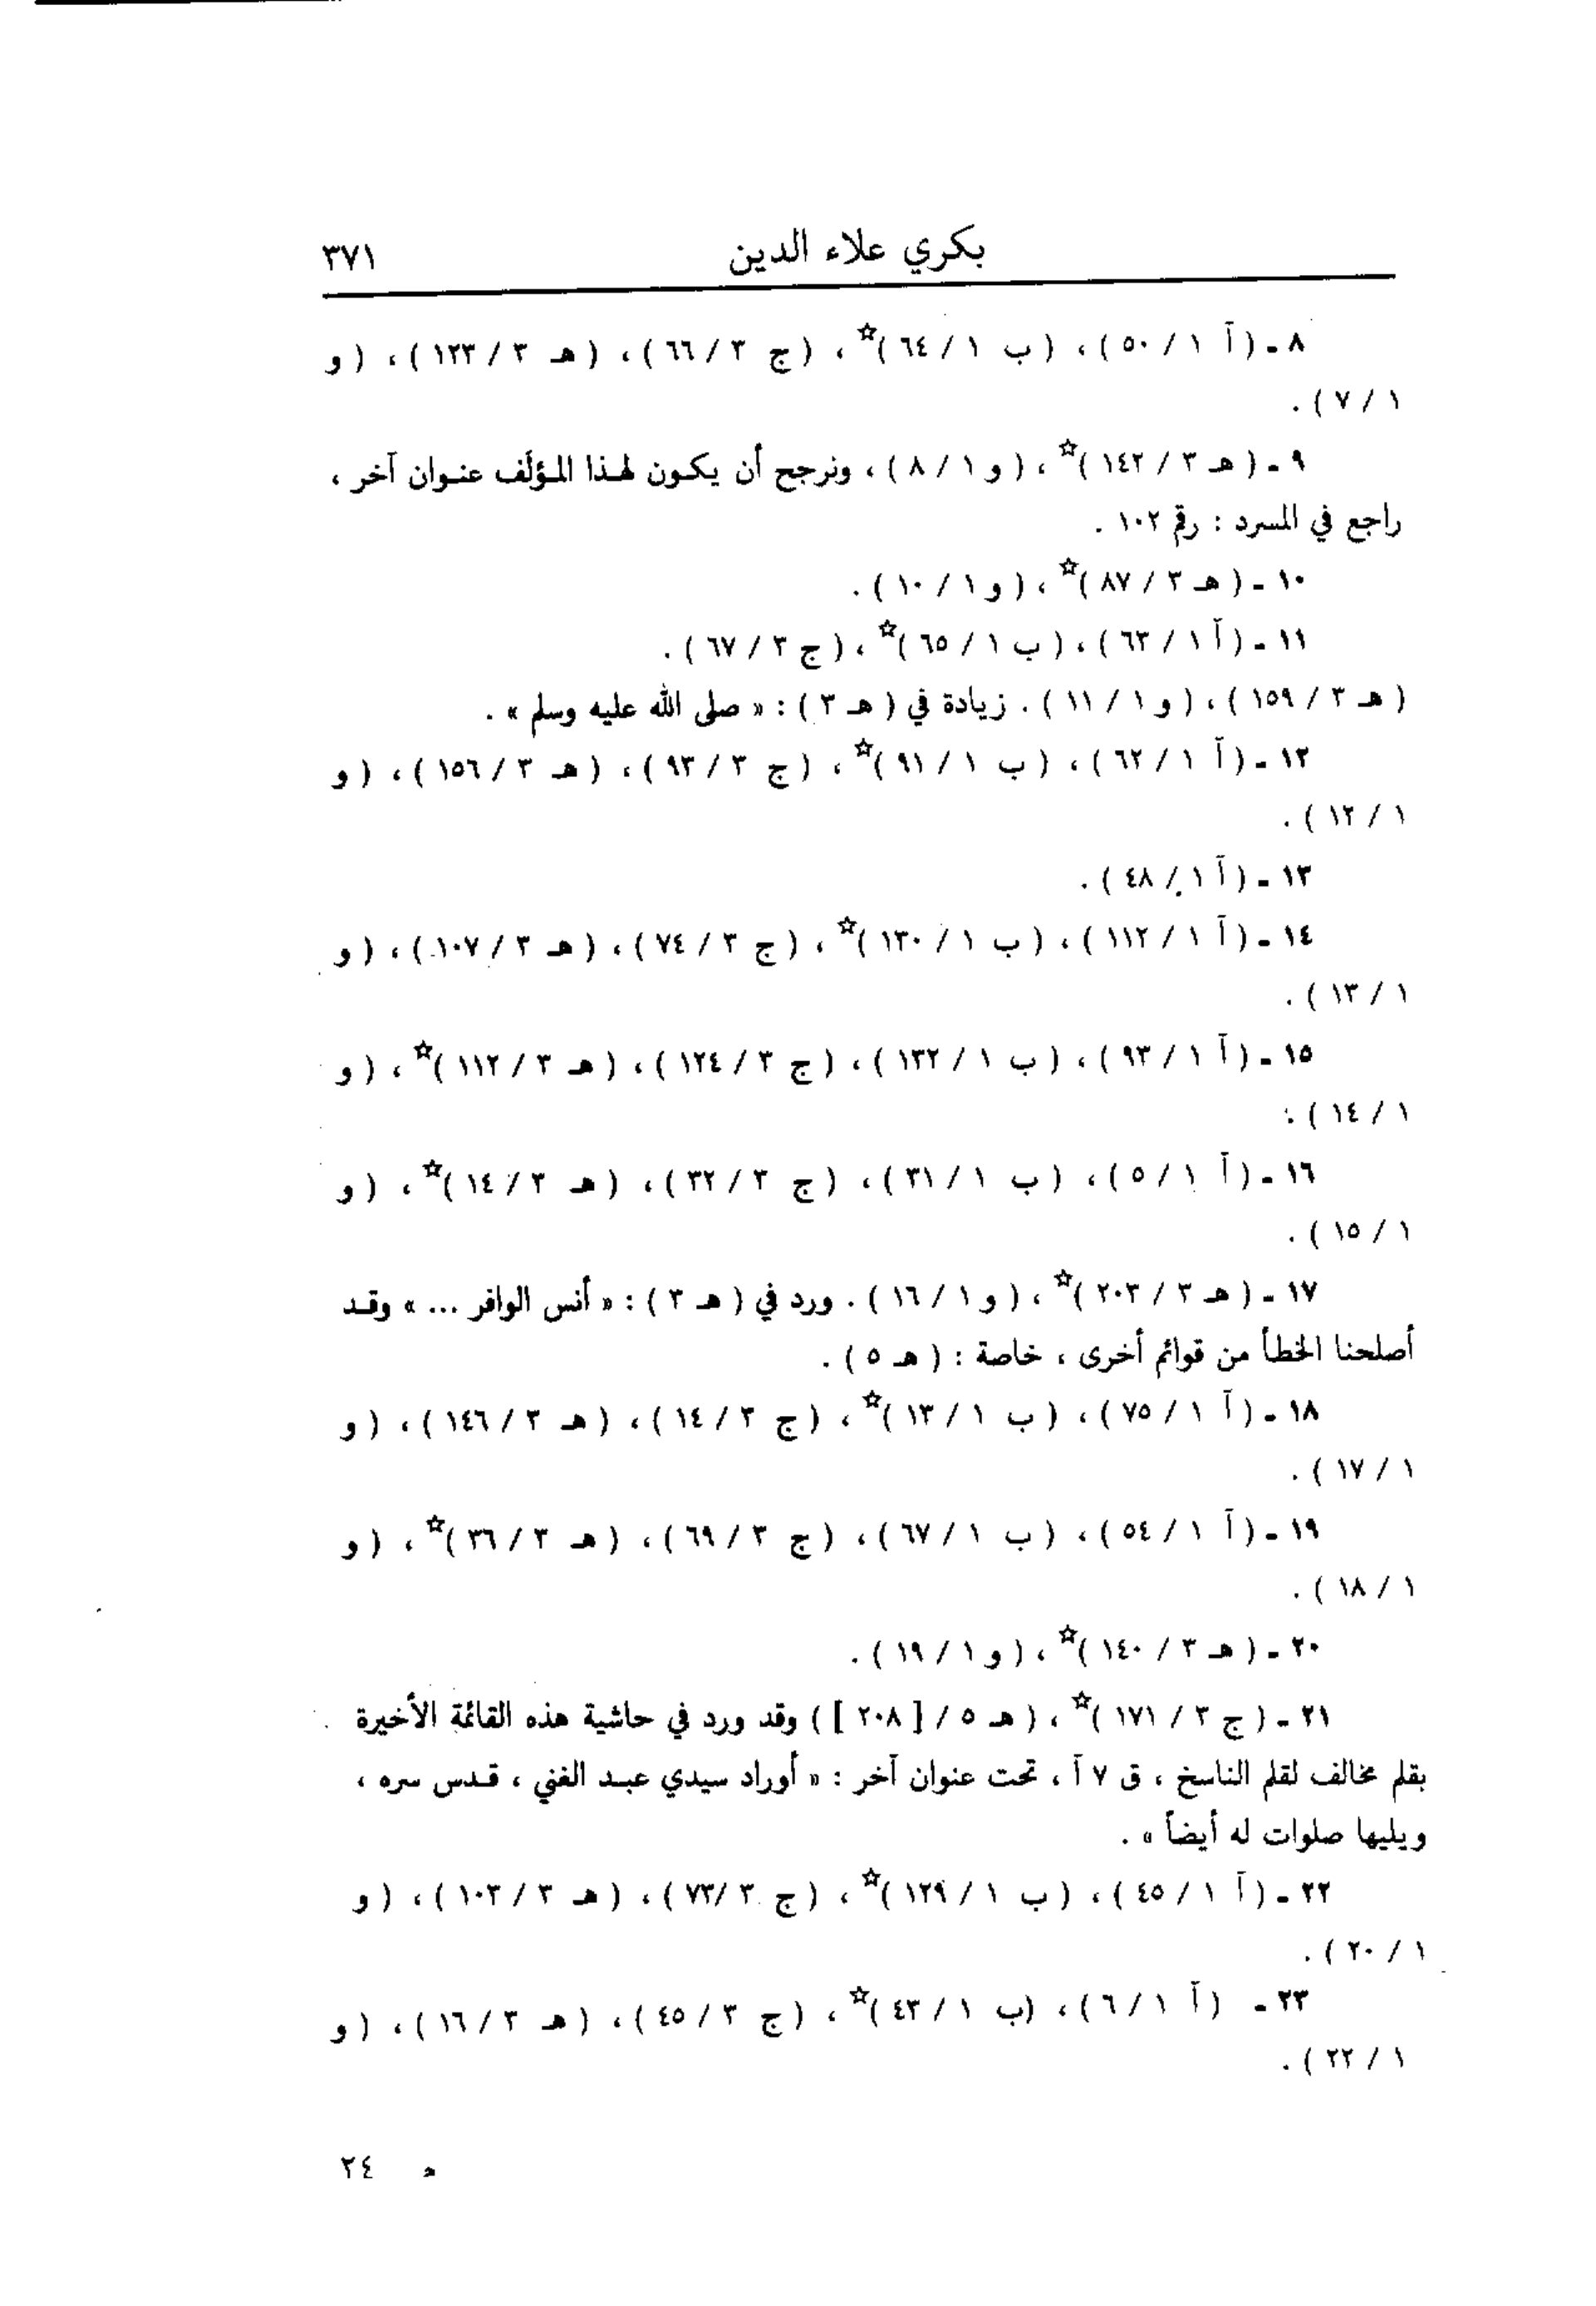 بكري علاء الدين ٣٧١
٨ - ( آ ١ / ٥٠ ) ، ( ب ١ / ٦٤ )☆ ، ( ج ٣ / ٦٦ ) ، ( هـ ٣ / ١٢٣ ) ، ( و
١ / ٧ ) .
٩ - ( هـ ٣ / ١٤٢ )☆ ، ( و ١ / ٨ ) ، ونرجح أن يكون لهذا المؤلَف عنوان آخر ،
راجع في المسرد : رقم ١٠٢ .
١٠ - ( هـ ٣ / ٨٧ )☆ ، ( و ١ / ١٠ ) .
١١ - ( آ ١ / ٦٣ ) ، ( ب ١ / ٦٥ )☆ ، ( ج ٣ / ٦٧ ) .
( هـ ٣ / ١٥٩ ) ، ( و ١ / ١١ ) . زيادة في ( هـ ٣ ) : « صلى الله عليه وسلم » .
١٢ - ( آ ١ / ٦٢ ) ، ( ب ١ / ٩١ )☆ ، ( ج ٣ / ٩٣ ) ، ( هـ ٣ / ١٥٦ ) ، ( و
١ / ١٢ ) .
١٣ - ( آ ١ / ٤٨ ) .
١٤ - ( آ ١ / ١١٢ ) ، ( ب ١ / ١٣٠ )☆ ، ( ج ٣ / ٧٤ ) ، ( هـ ٣ / ١٠٧ ) ، ( و
١ / ١٣ ) .
١٥ - ( آ ١ / ٩٣ ) ، ( ب ١ / ١٣٢ ) ، ( ج ٣ / ١٢٤ ) ، ( هـ ٣ / ١١٢ )☆ ، ( و
١ / ١٤ ) .
١٦ - ( آ ١ / ٥ ) ، ( ب ١ / ٣١ ) ، ( ج ٣ / ٣٢ ) ، ( هـ ٣ / ١٤ )☆ ، ( و
١ / ١٥ ) .
١٧ - ( هـ ٣ / ٢٠٣ )☆ ، ( و ١ / ١٦ ) . ورد في ( هـ ٣ ) : « أنس الوافر ... » وقد
أصلحنا الخطأ من قوائم أخرى ، خاصة : ( هـ ٥ ) .
١٨ - ( آ ١ / ٧٥ ) ، ( ب ١ / ١٣ )☆ ، ( ج ٣ / ١٤ ) ، ( هـ ٣ / ١٤٦ ) ، ( و
١ / ١٧ ) .
١٩ - ( آ ١ / ٥٤ ) ، ( ب ١ / ٦٧ ) ، ( ج ٣ / ٦٩ ) ، ( هـ ٣ / ٣٦ )☆ ، ( و
١ / ١٨ ) .
٢٠ - ( هـ ٣ / ١٤٠ )☆ ، ( و ١ / ١٩ ) .
٢١ - ( ج ٣ / ١٧١ )☆ ، ( هـ ٥ / [ ٢٠٨ ] ) وقد ورد في حاشية هذه القائمة الأخيرة
بقلم مخالف لقلم الناسخ ، ق ٧ آ ، تحت عنوان آخر : « أوراد سيدي عبد الغني ، قدس سره ،
ويليها صلوات له أيضاً » .
٢٢ - ( آ ١ / ٤٥ ) ، ( ب ١ / ١٢٩ )☆ ، ( ج ٣ / ٧٣ ) ، ( هـ ٣ / ١٠٣ ) ، ( و
١ / ٢٠ ) .
٢٣ - ( آ ١ / ٦ ) ، ( ب ١ / ٤٣ )☆ ، ( ج ٣ / ٤٥ ) ، ( هـ ٣ / ١٦ ) ، ( و
١ / ٢٢ ) .
٢٤